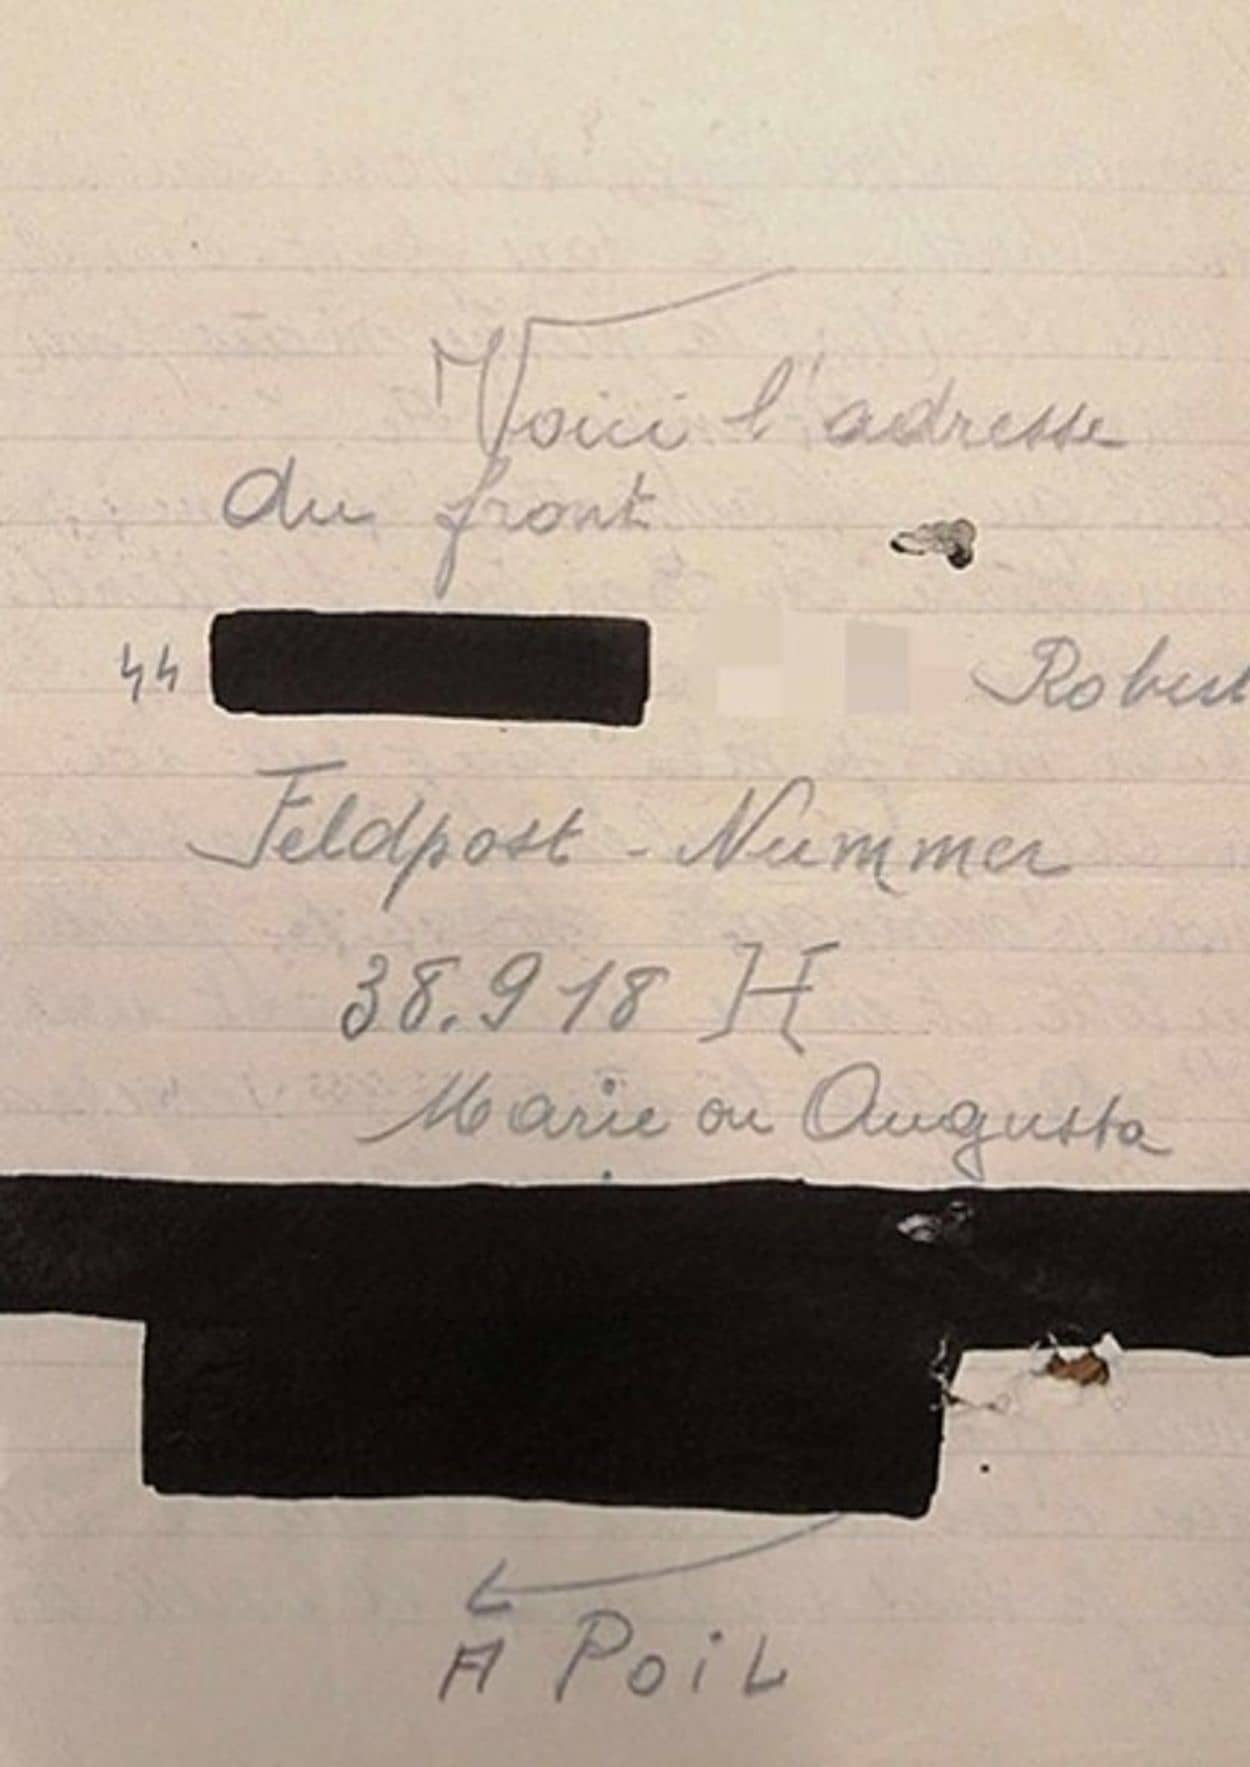 Voici l'adresse
du front
44 Robert
Feldpost - Nummer
38.918 H
Marie ou Augusta
A Poil